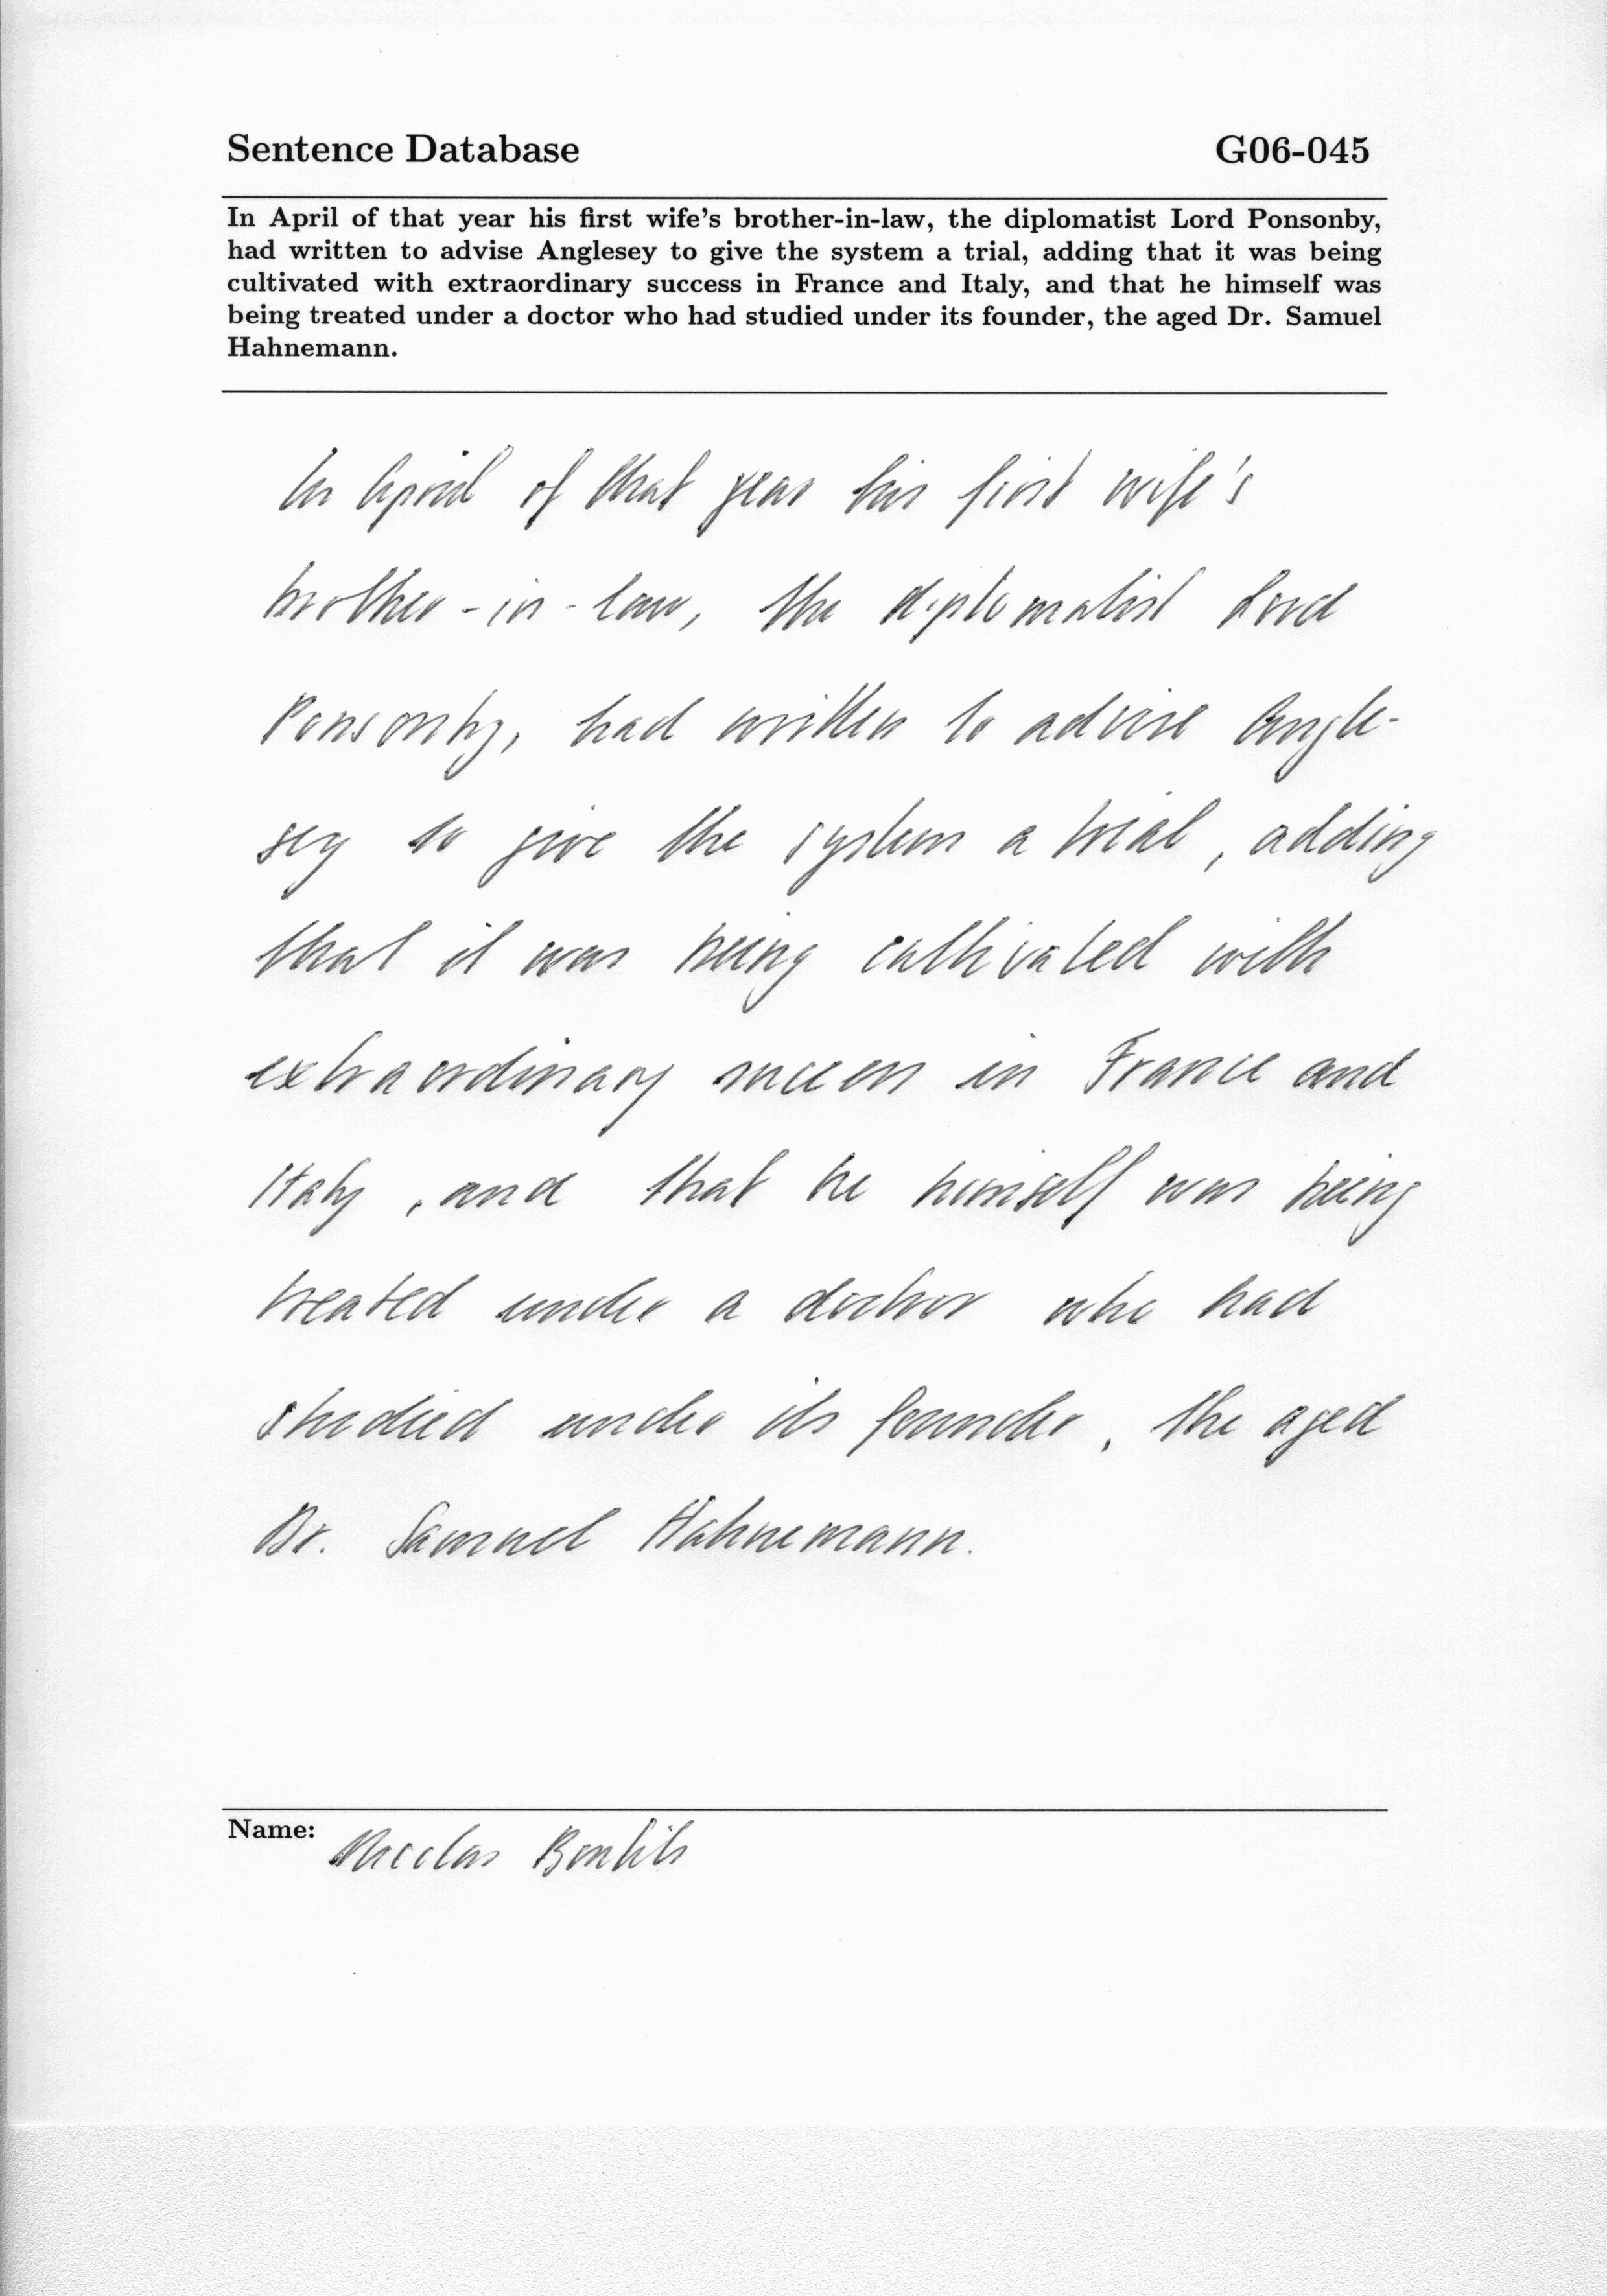 Sentence Database G06-045
In April of that year his first wife's brother-in-law, the diplomatist Lord Ponsonby,
had written to advise Anglesey to give the system a trial, adding that it was being
cultivated with extraordinary success in France and Italy, and that he himself was
being treated under a doctor who had studied under its founder, the aged Dr. Samuel
Hahnemann.
In April of that year his first wife's
brother-in-law, the diplomatist Lord
Ponsonby, had written to advise Angle-
sey to give the system a trial, adding
that it was being cultivated with
extraordinary success in France and
Italy, and that he himself was being
treated under a doctor who had
studied under its founder, the aged
Dr. Samuel Hahnemann.
Name: Nicolas